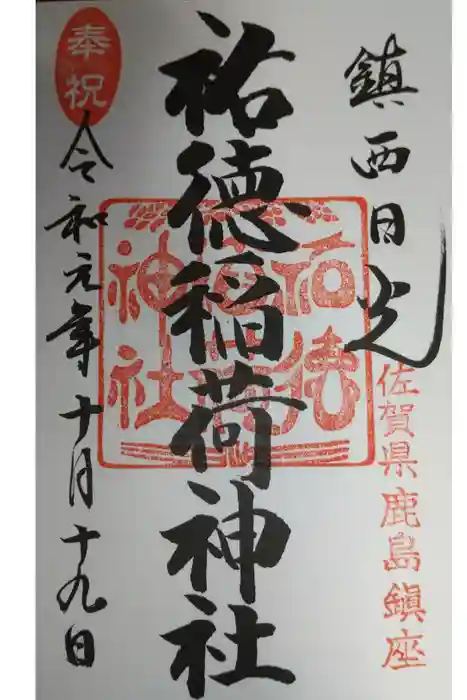 鎮西日光
佐賀県鹿島鎮座
祐徳稲荷神社
祐徳稲荷神社
奉祝
令和元年十月十九日